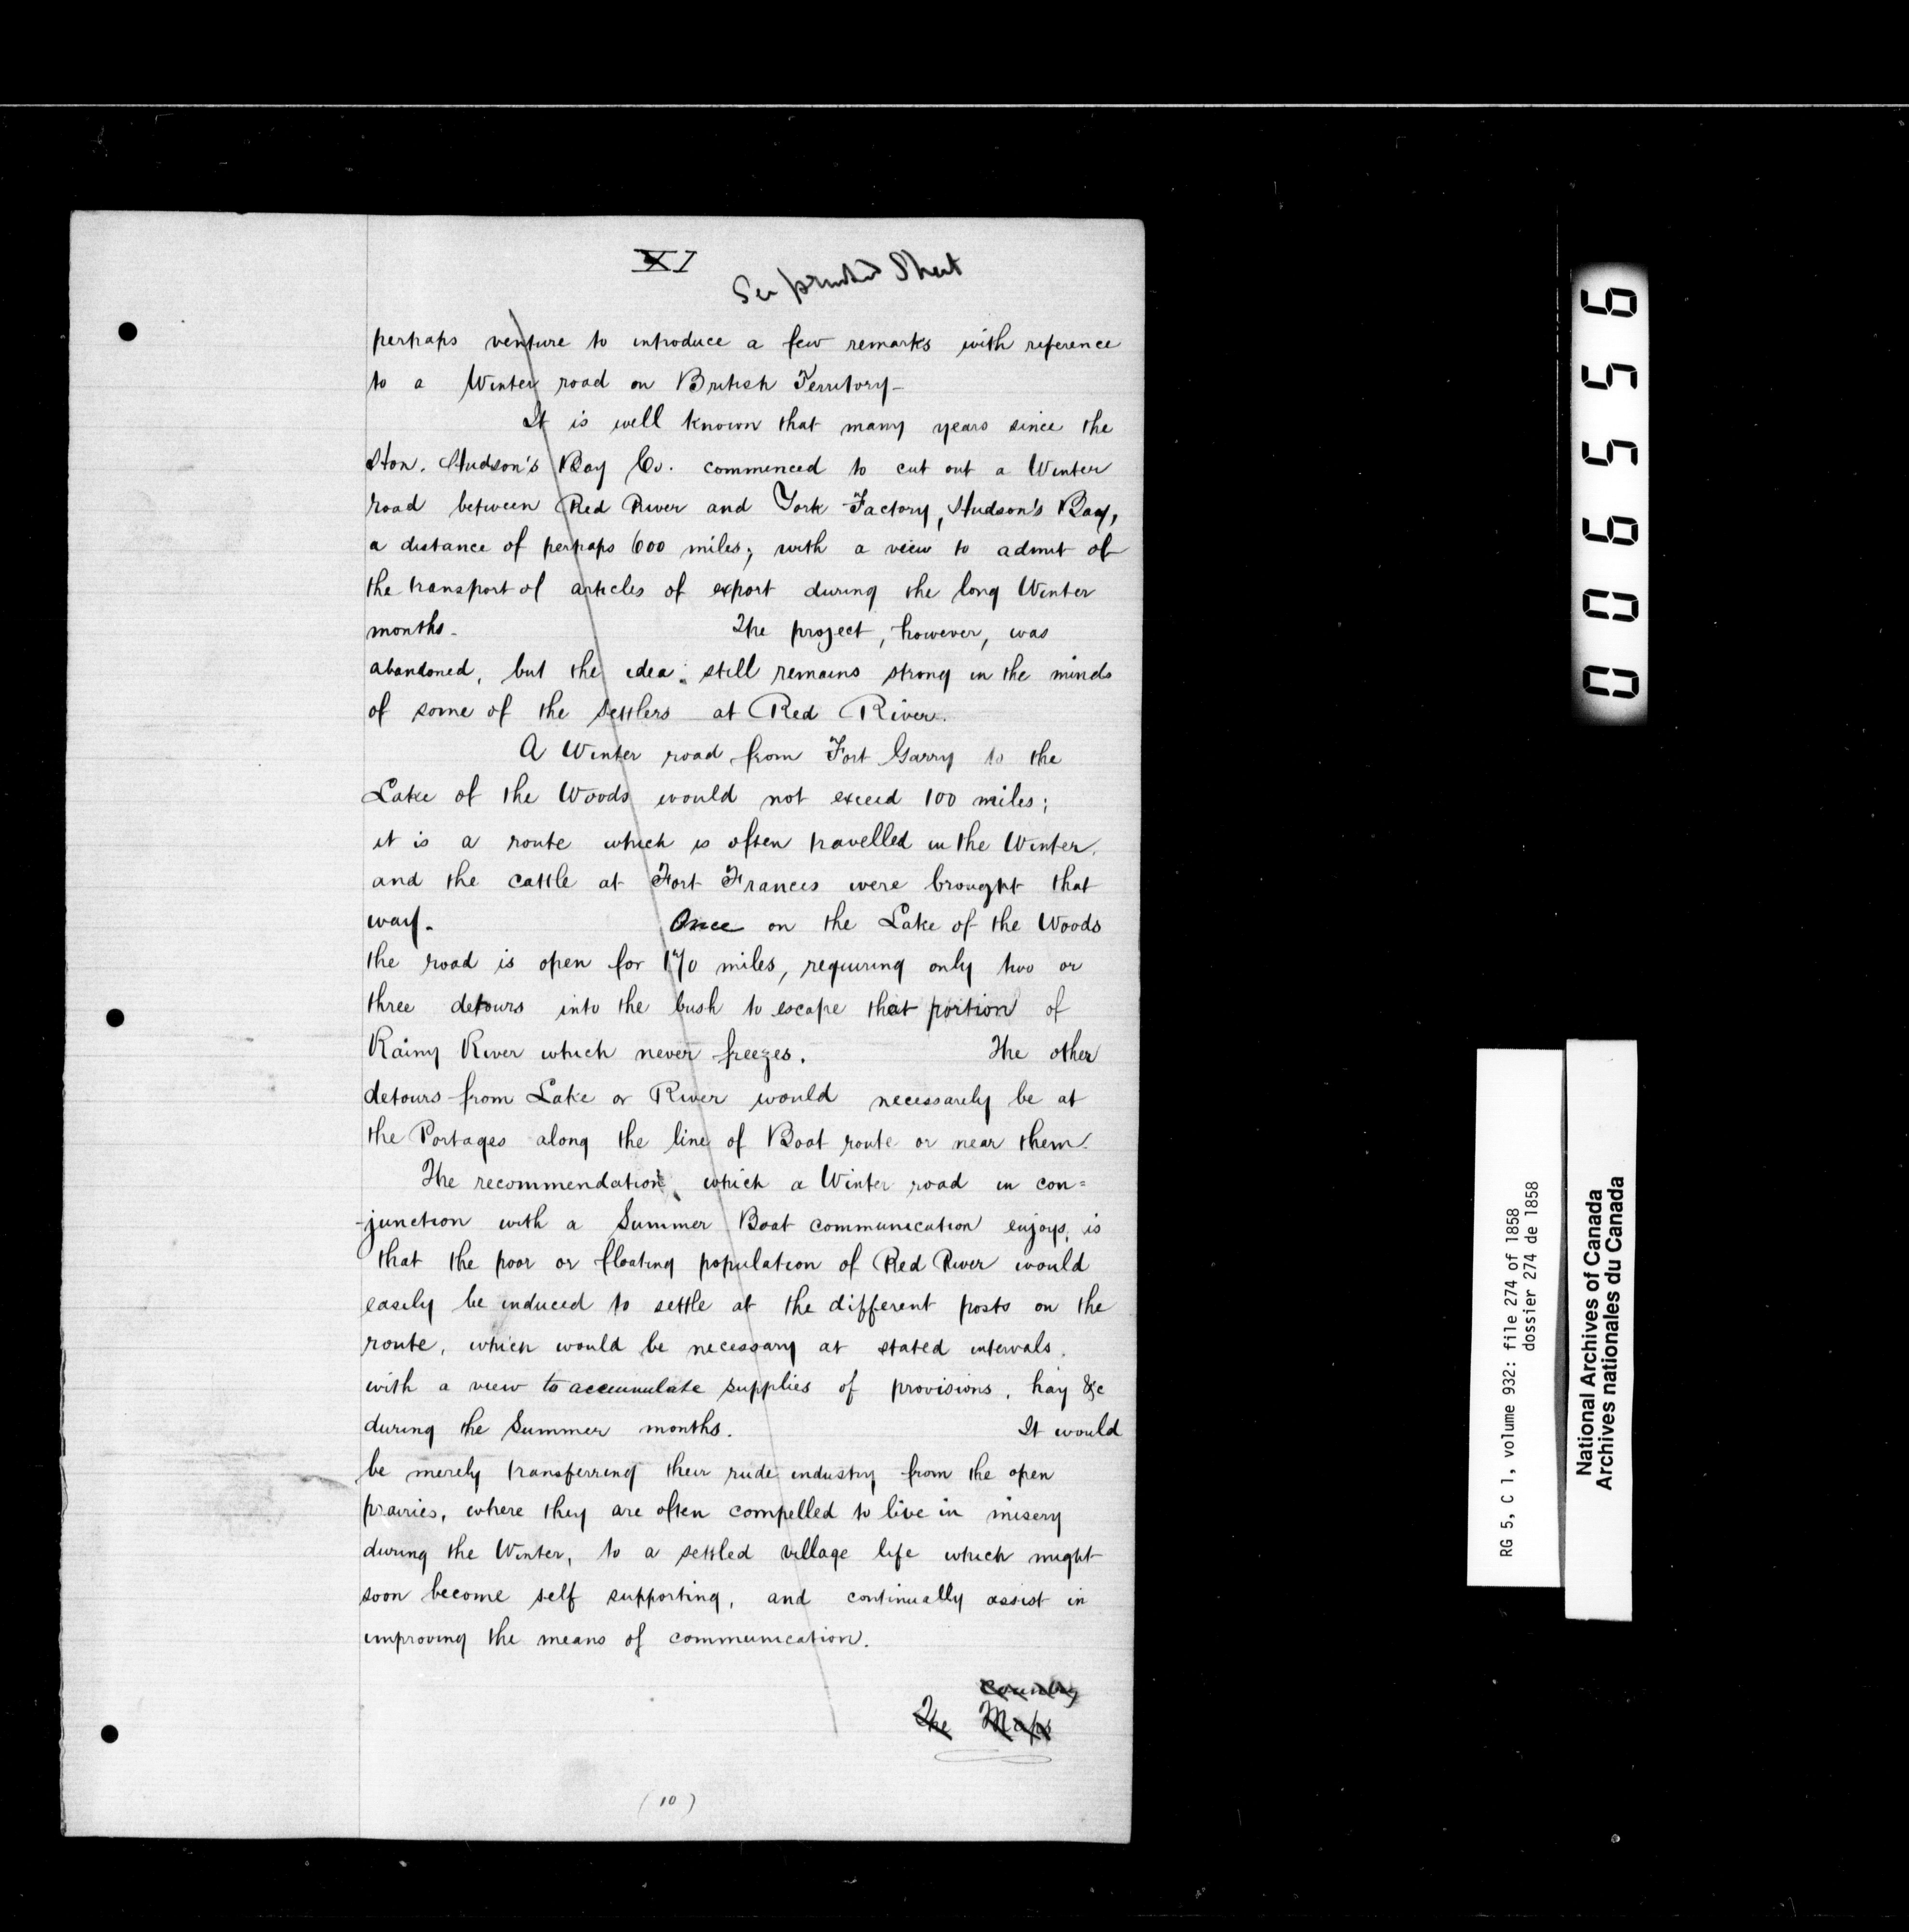 XI
See printed Sheet
perhaps venture to introduce a few remarks with reference
to a Winter road on British Territory-
It is well known that many years since the
Hon. Hudson's Bay Co. commenced to cut out a Winter
road between Red River and York Factory, Hudson's Bay,
a distance of perhaps 600 miles; with a view to admit of
the transport of articles of export during the long Winter
months. The project, however, was
abandoned, but the idea still remains strong in the minds
of some of the Settlers at Red River.
A Winter road from Fort Garry to the
Lake of the Woods would not exceed 100 miles;
it is a route which is often travelled in the Winter,
and the cattle at Fort Frances were brought that
way. Once on the Lake of the Woods
the road is open for 170 miles, requiring only two or
three detours into the bush to escape that portion of
Rainy River which never freezes. The other
detours from Lake or River would necessarely be at
the Portages along the line of Boat route or near them.
The recommendation, which a Winter road in con=
-junction with a Summer Boat communication enjoys, is
that the poor or floating population of Red River would
easily be induced to settle at the different posts on the
route, which would be necessary at stated intervals,
with a view to accumulate supplies of provisions, hay &c
during the Summer months. It would
be merely transferring their rude industry from the open
prairies, where they are often compelled to live in misery
during the Winter, to a settled village life which might
soon become self supporting, and continually assist in
improving the means of communication.
country
The Maps
(10)
006556
RG 5, C 1, volume 932: file 274 of 1858
dossier 274 de 1858
National Archives of Canada
Archives nationales du Canada